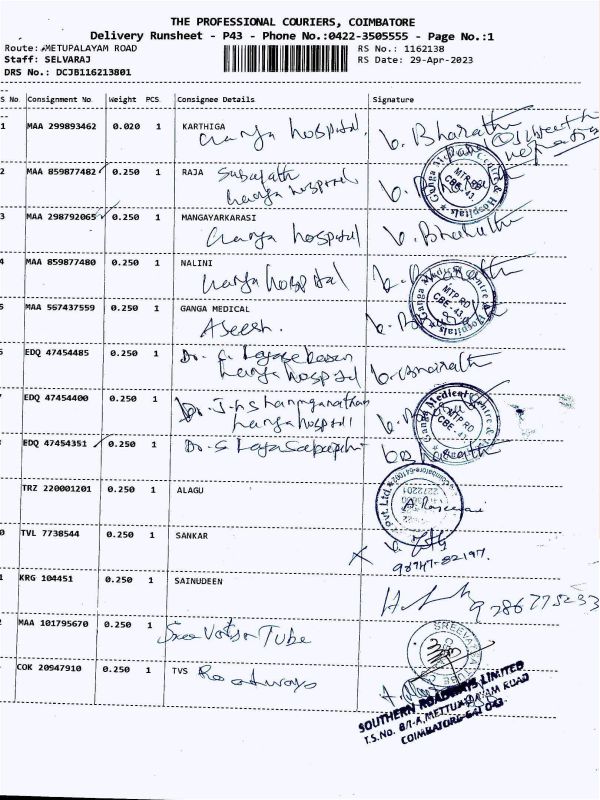 THE PROFESSIONAL COURIERS, COIMBATORE
Delivery Runsheet - P43 - Phone No.:0422-3505555 - Page No.:1
Route: METUPALAYAM ROAD
RS No.: 1162138
Staff: SELVARAJ
RS Date: 29-Apr-2023
DRS No.: DCJB116213801
S No. Consignment No. Weight PCS. Consignee Details Signature
1 MAA 299893462 0.020 1 KARTHIGA
Ganga hospital. b. Bharath
2 MAA 859877482 0.250 1 RAJA
Ganga hospital
3 MAA 298792065 0.250 1 MANGAYARKARASI
Ganga hospital b. Bharath
4 MAA 859877480 0.250 1 NALINI
Ganga hospital b. Bharath
MAA 567437559 0.250 1 GANGA MEDICAL
EDQ 47454485 0.250 1 Dr.
Ganga hospital b. Bharath
EDQ 47454400 0.250 1 Dr. J.
Ganga hospital
EDQ 47454351 0.250 1 Dr. S
Bharath
TRZ 220001201 0.250 1 ALAGU
TVL 7738544 0.250 1 SANKAR
98747-82197.
KRG 104451 0.250 1 SAINUDEEN
MAA 101795670 0.250 1 Sree Tube
COK 20947910 0.250 1 TVS Roadways
Ganga Medical Centre & Hospitals
MTP.RO
CBE-43.
Pvt.Ltd.
2272201
SREEVATSA TUBE
SOUTHERN ROADWAYS LIMITED
T.S.No. 8/1-A, METTUPALAYAM ROAD
COIMBATORE-641 043.